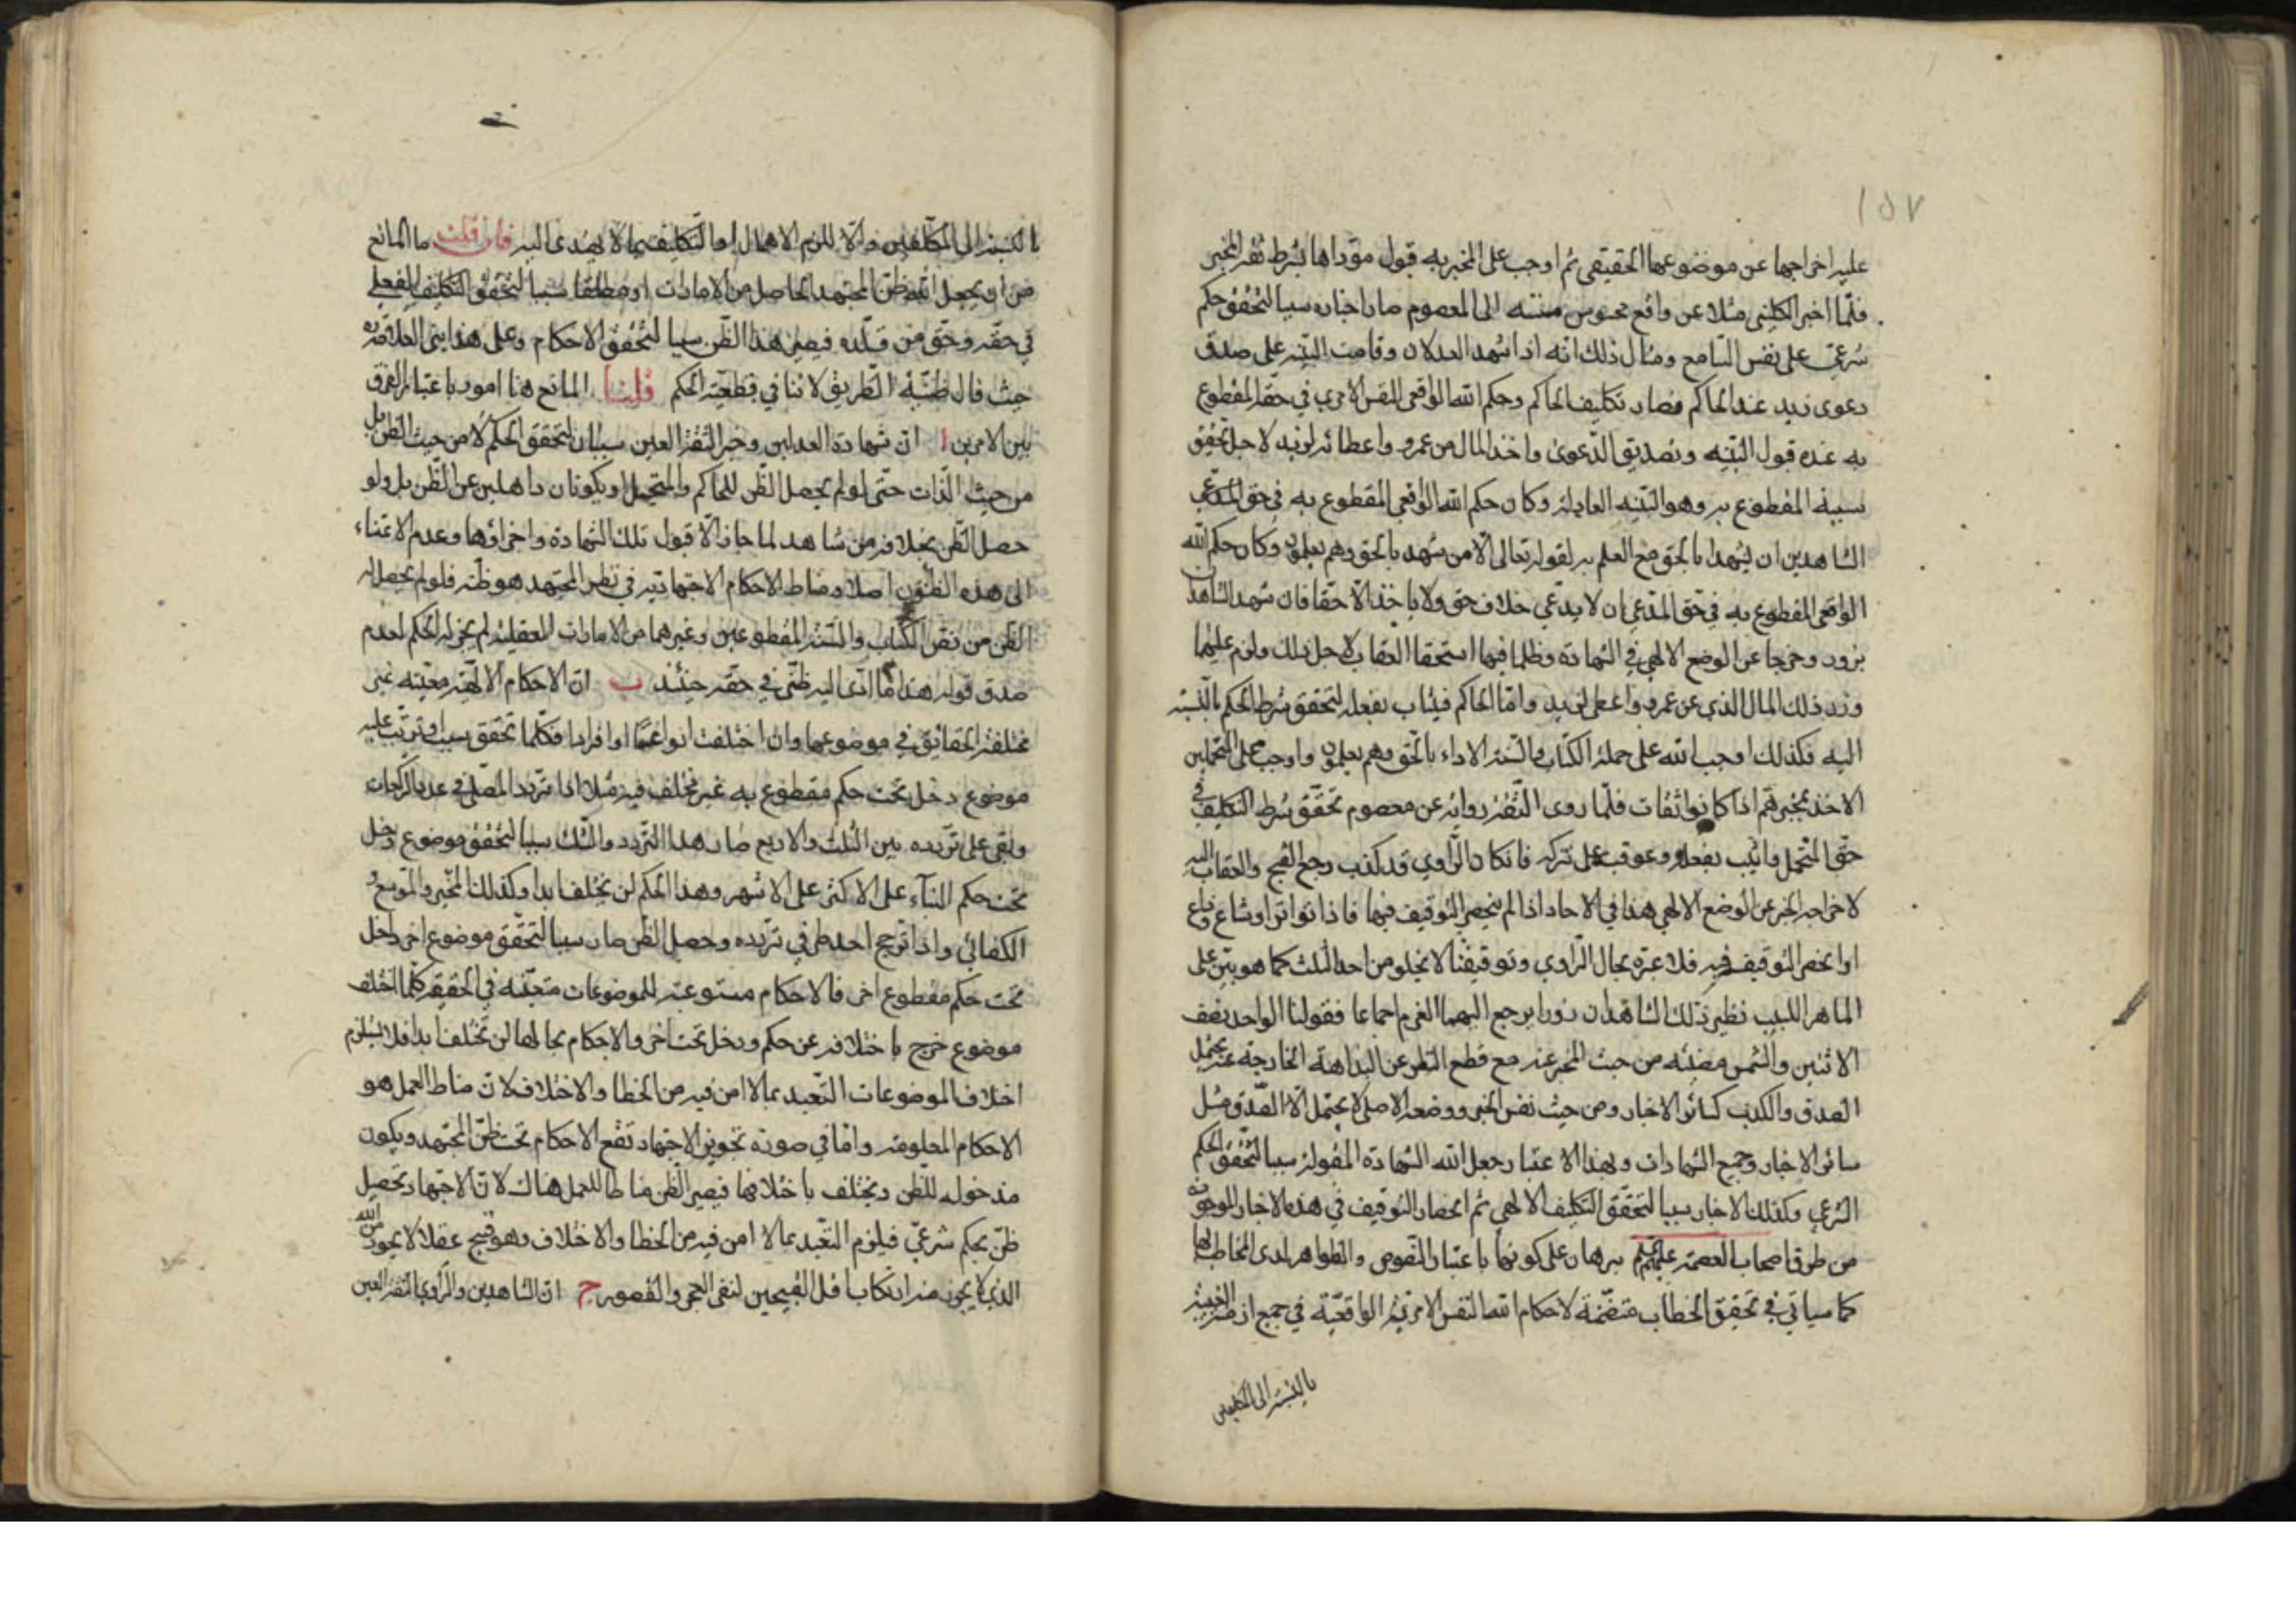 ١٥٧
عليه اخراجها عن موضوعها الحقيقي ثم اوجب على المخبر به قبول مؤداها بشرط ثقة المخبر
فلما اخبر الكليني مثلا عن واقع محسوس منتبه الى المعصوم صار اخباره سببا لتحقق حكم
شرعي على نفس السامع ومثال ذلك انه اذا شهد العدلان وقامت البينه على صدق
دعوى زيد عند الحاكم فصار تكليف الحاكم وحكم الله الواقعي النفس الامري في حقه المقطوع
به عنده قول البينه وتصديق الدعوى واخذ المال من عمرو واعطائه لزيد لاجل تحقيق
سببه المقطوع به وهو البينه العادلة وكان حكم الله الواقعي المقطوع به في حق المدعي
الشاهدين ان يشهدا بالحق مع العلم به لقوله تعالى الا من شهد بالحق وهم يعلمون وكان حكم الله
الواقعي المقطوع به في حق المدعي ان لا يدعي خلاف حق ولا ياخذ الا حقا فان شهد الشاهدان
بزور وخرجا عن الوضع الالهي في الشهادة وظلما فيها استحقا العقاب لاجل ذلك ولزم عليهما
ورد ذلك المال الذي عن عمرو واعطى لزيد واما الحاكم فيثاب بفعله لتحقق شرط الحكم بالنسبة
اليه فكذلك اوجب الله على حملة الكتاب والسنة الاداء بالحق وهم يعلمون واوجب على المتحملين
الاخذ بخبرهم اذا كانوا ثقات فلما روى الثقة رواية عن معصوم تحقق شرط التكليف في
حق المتحمل واثيب بفعله وعوقب على تركه فان كان الراوي قد كذب رجع القبح والعقاب اليه
لاخراجه الخبر عن الوضع الالهي هذا في الاحاد اذا لم ينحصر التوقيف فيها فاذا تواتر او شاع وذاع
او انحصر التوقيف فيه فلا عبرة بحال الراوي وتوقيفنا لا يخلو من احد الثلث كما هو بين على
الماهر اللبيب نظير ذلك الشاهدان زورا يرجع اليهما الغرم اجماعا فقولنا الواحد نصف
الاثنين والشمس مضيئه من حيث المخبر عنه مع قطع النظر عن البداهة الخارجة عنه يحتمل
الصدق والكذب كسائر الاخبار ومن حيث نفس الخبر ووضعه الاصلي لا يحتمل الا الصدق مثل
سائر الاخبار وجميع الشهادات وبهذا الاعتبار جعل الله الشهادة المقبولة سببا لتحقق الحكم
الشرعي وكذلك الاخبار سببا لتحقق التكليف الالهي ثم انحصار التوقيف في هذه الاخبار الموجودة
من طرق اصحاب العصمة عليهم برهان على كونها باعتبار النصوص والظواهر لدى المخاطب بها
كما سياتي في تحقيق الخطاب متضمنة لاحكام الله النفس الامرية الواقعية في جميع ازمنة الغيبة
بالنسبة الى المكلفين
بالنسبة الى المكلفين والا للزم الاهمال او التكليف بما لا يهتدى اليه فان قلت ما المانع
من ان يجعل الله ظن المجتهد الحاصل من الامارات او مطلقا سببا لتحقق التكليف الفعلي
في حقه وحق من قلده فيصير هذا الظن سببا لتحقق الاحكام وعلى هذا بنى العلامة ره
حيث قال ظنية الطريق لا تنافي قطعية الحكم قلنا المانع هنا امور باعتبار الفرق
بين الامرين ا ان شهادة العدلين وخبر الثقة العين سببان لتحقق الحكم لا من حيث الظن بل
من حيث الذات حتى لو لم يحصل الظن للحاكم والمتحمل او يكونان ذاهلين عن الظن بل ولو
حصل الظن بخلافه من شاهد لما جاز الا قبول تلك الشهادة واجراؤها وعدم الاعتناء
الى هذه الظنون اصلا ومناط الاحكام الاجتهاديه في نظر المجتهد هو ظنه فلو لم يحصل له
الظن من نص الكتاب والسنة المقطوعين وغيرهما من الامارات العقلية لم يجز له الحكم لعدم
صدق قوله هذا ما ادى اليه ظني في حقه حينئذ ب ان الاحكام الالهية معينه غير
مختلفة الحقائق في موضوعها وان اختلفت انواعها او افرادا فكلما تحقق سبب وترتب عليه
موضوع دخل تحت حكم مقطوع به غير مختلف فيه مثلا اذا تردد المصلي في عدد الركعات
وبقى على تردده بين الثلث والاربع صار هذا التردد والشك سببا لتحقق موضوع دخل
تحت حكم البناء على الاكثر على الاشهر وهذا الحكم لن يختلف ابدا وكذلك المخير والموسع و
الكفائي واذا ترجح احد طرفي تردده وحصل الظن صار سببا لتحقق موضوع اخر داخل
تحت حكم مقطوع اخر فالاحكام مستوعبة للموضوعات متعينه في الحقيقه كلما اختلف
موضوع خرج باختلافه عن حكم ودخل تحت اخر والاحكام بحالها لن تختلف ابدا فلا يستلزم
اختلاف الموضوعات التعبد بما لا امن فيه من الخطا والاختلاف لان مناط العمل هو
الاحكام المعلومة واما في صورة تجويز الاجتهاد تقع الاحكام تحت ظن المجتهد ويكون
مدخوله للظن ويختلف باختلافها فيصير الظن مناطا للعمل هناك لان الاجتهاد تحصيل
ظن بحكم شرعي فيلزم التعبد بما لا امن فيه من الخطا والاختلاف وهو قبيح عقلا لا يجوز من الله
الذي لا يجوز منه ارتكاب اقل القبيحين لنفي العجز والقصور ج ان الشاهدين والراوي الثقة العين